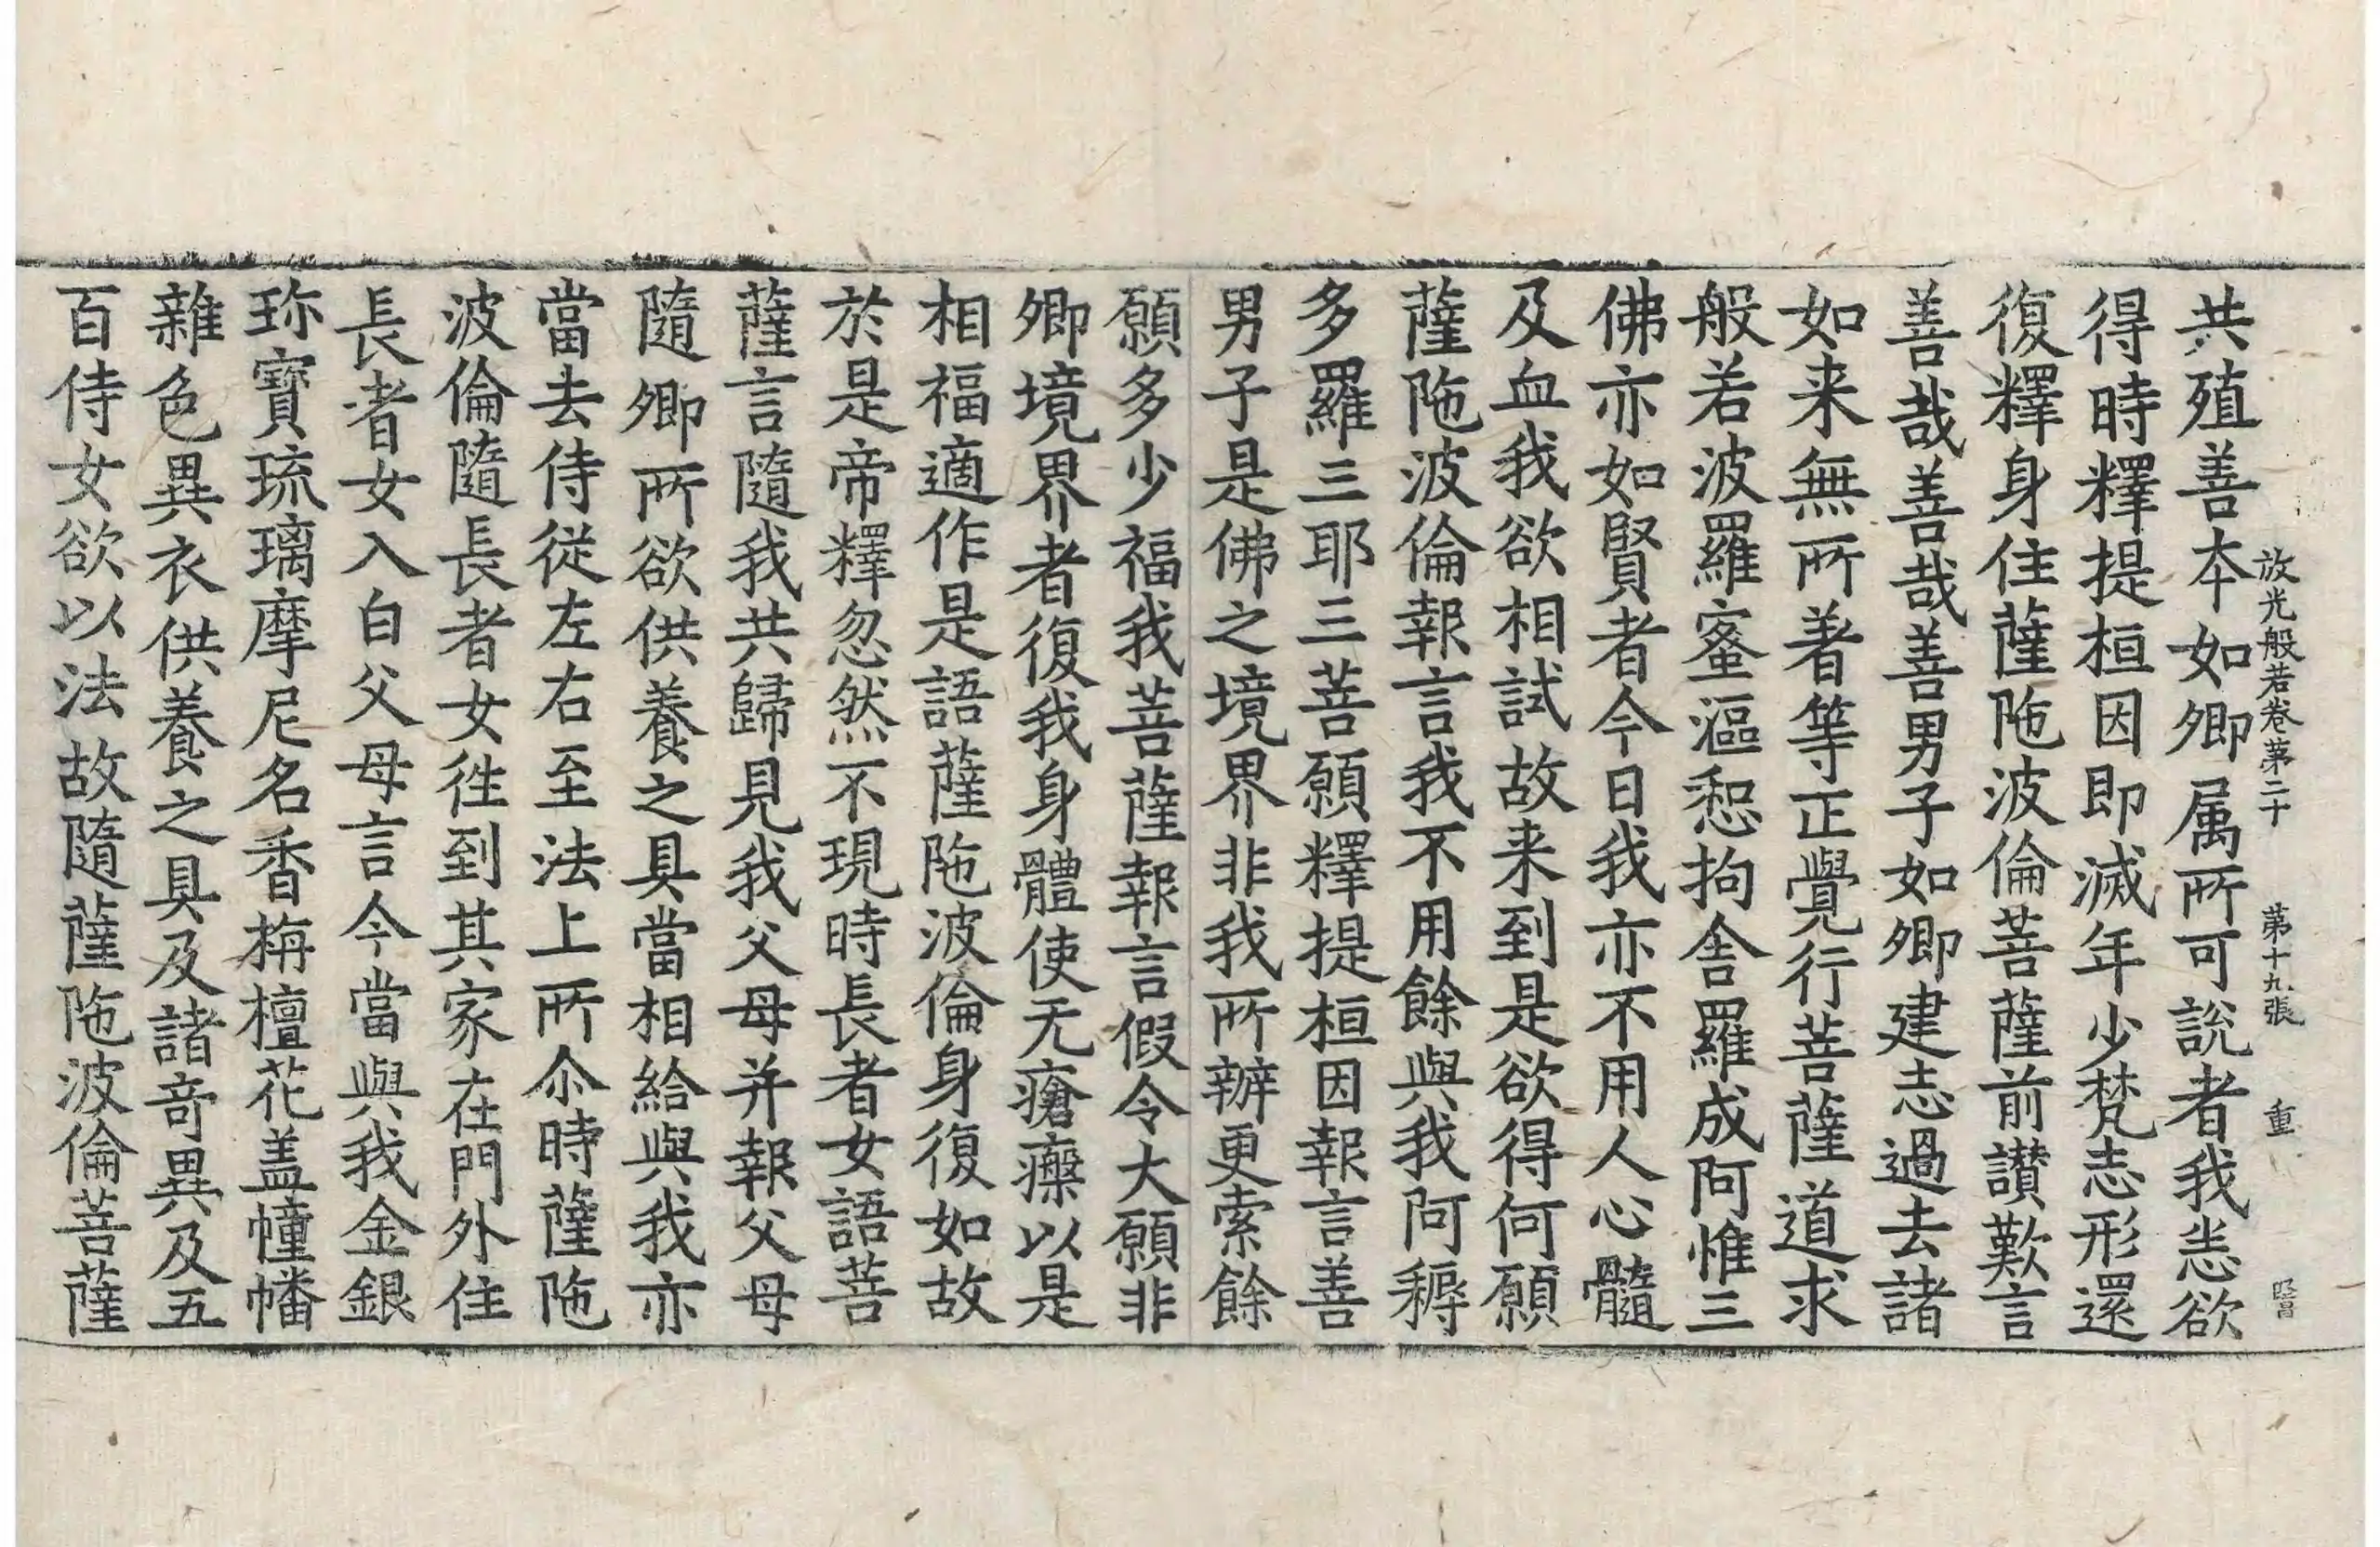 放光般若卷第二十 第十九張 重
共殖善本如卿属所可說者我恙欲
得時釋提桓因即滅年少梵志形還
復釋身住薩陁波倫菩薩前讃歎言
善哉善哉善男子如卿建志過去諸
如来無所著等正覺行菩薩道求
般若波羅蜜漚惒拘舍羅成阿惟三
佛亦如賢者今日我亦不用人心髓
及血我欲相試故来到是欲得何願
薩陁波倫報言我不用餘與我阿耨
多羅三耶三菩願釋提桓因報言善
男子是佛之境界非我所辦更索餘
願多少福我菩薩報言假令大願非
卿境界者復我身體使无瘡癢以是
相福適作是語薩陁波倫身復如故
於是帝釋忽然不現時長者女語菩
薩言隨我共歸見我父母并報父母
隨卿所欲供養之具當相給與我亦
當去侍從左右至法上所尒時薩陁
波倫隨長者女徃到其家在門外住
長者女入白父母言今當與我金銀
珎寶琉璃摩尼名香栴檀花盖幢幡
雜色異衣供養之具及諸奇異及五
百侍女欲以法故隨薩陁波倫菩薩